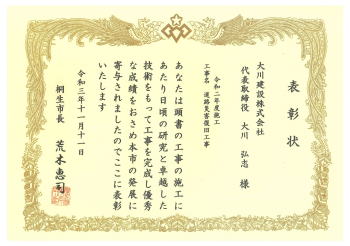 表彰状
大川建設株式会社
代表取締役 大川 弘志 様
令和二年度施工
工事名 道路災害復旧工事
あなたは頭書の工事の施工に
あたり日頃の研究と卓越した
技術をもって工事を完成し優秀
な成績をおさめ本市の発展に
寄与されましたのでここに表彰
いたします
令和三年十一月十一日
桐生市長 荒木恵司